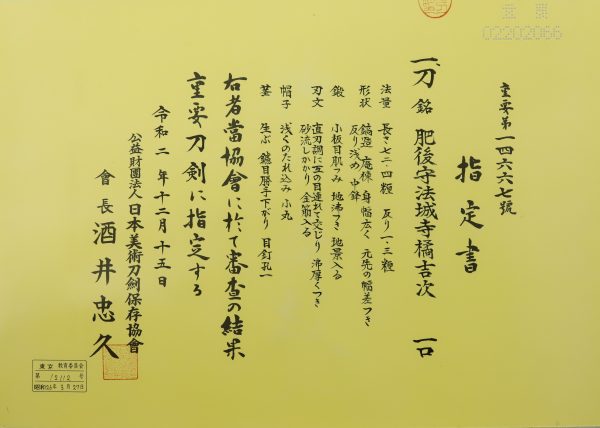 重要
02202066
重要第一四六六七號
指定書
一、刀 銘 肥後守法城寺橘吉次 一口
法量 長さ七二・四糎 反り一・三糎
形状 鎬造 庵棟 身幅広く 元先の幅差つき
反り浅め 中鋒
鍛 小板目肌つみ 地沸つき 地景入る
刃文 直刃調に互の目連れて交じり 沸厚くつき
砂流しかかり 金筋入る
帽子 浅くのたれ込み 小丸
茎 生ぶ 鑢目勝手下がり 目釘孔一
右者當協會に於て審査の結果
重要刀剣に指定する
令和二年十二月十五日
公益財團法人日本美術刀劍保存協會
會長 酒井忠久
東京 教育委員会
第 号
昭和26年3月27日